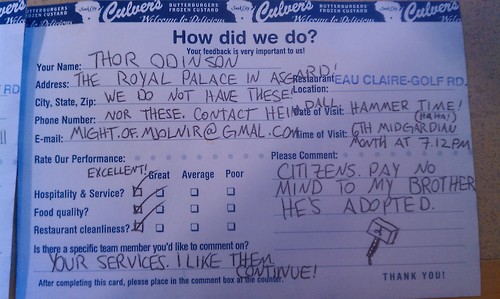 Culver's BUTTERBURGERS FROZEN CUSTARD Culver's BUTTERBURGERS FROZEN CUSTARD Culver's
Welcome to Delicious
How did we do?
Your feedback is very important to us!
Your Name: THOR ODINSON
Address: THE ROYAL PALACE IN ASGARD!
Restaurant Location: EAU CLAIRE-GOLF RD.
City, State, Zip: WE DO NOT HAVE THESE!
Phone Number: NOR THESE. CONTACT HEIMDALL
Date of Visit: HAMMER TIME!
(HAHA!)
E-mail: MIGHT.OF.MJOLNIR@GMAL.COM
Time of Visit: 6TH MIDGARDIAN
MONTH AT 7.12PM
Rate Our Performance:
EXCELLENT!
Great Average Poor
Hospitality & Service?
Food quality?
Restaurant cleanliness?
Please Comment:
CITIZENS. PAY NO
MIND TO MY BROTHER
HE'S ADOPTED.
Is there a specific team member you'd like to comment on?
YOUR SERVICES. I LIKE THEM.
CONTINUE!
After completing this card, please place in the comment box at the counter.
THANK YOU!